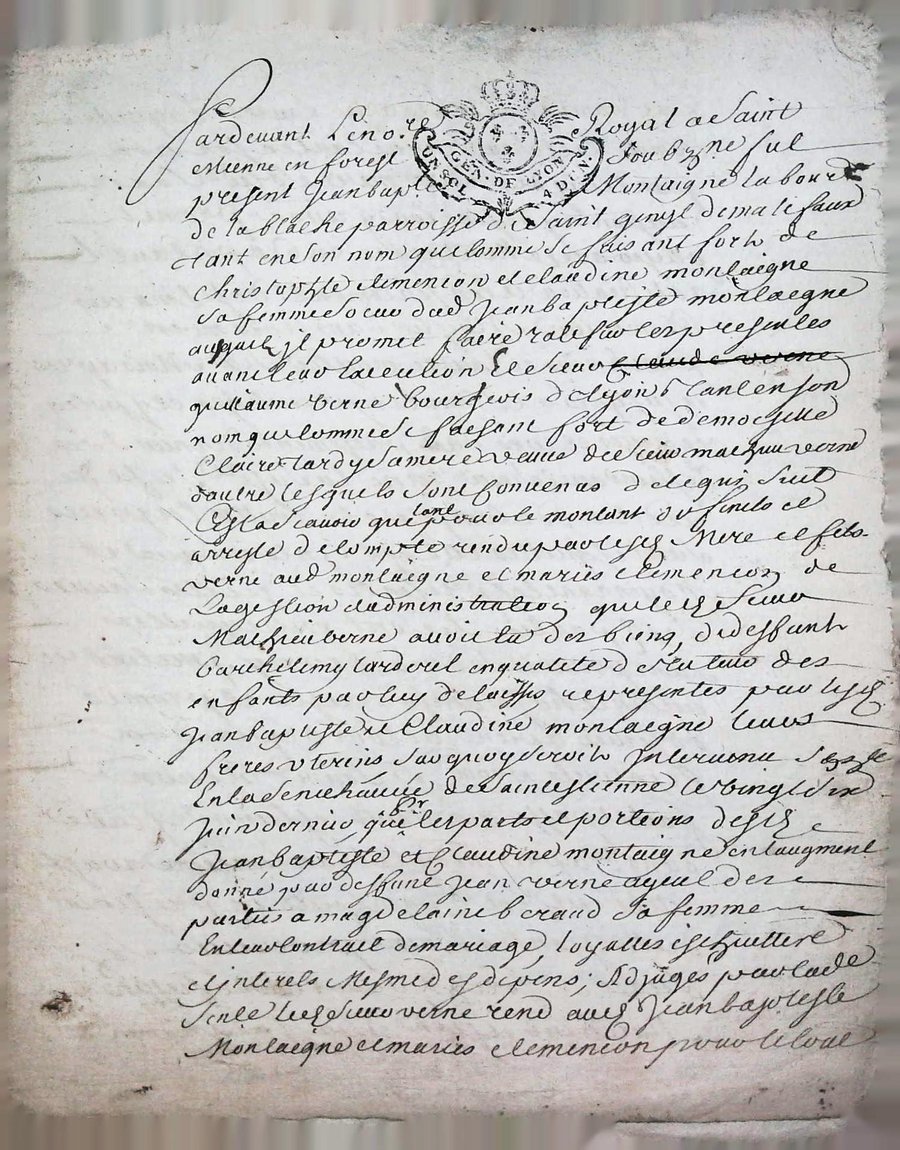 Pardevant Le no.re Royal a Saint
etienne en forest Soubz.ne fut
GEN. DE LYON
UN SOL 4 DEN.
present Jean bap.te Montaigne labour
de la blache parroisse de Saint genest de malifaux
tant en son nom que comme Se faisant fort de
Christophle clemencon et claudine montaigne
Sa femme Soeur dud Jean baptiste montaigne
auquel il promet faire ratifier les presentes
avant leur execution Et le Sieur Claude verne
guillaume verne bourgeois de lyon tant en son
nom que comme Se faisant fort de demoiselle
Claire tardy Sa mere veuve de Sieur mathieu verne
dautre lesquels Sont Convenus de ce qui Suit
Cest a Scavoir que tant pour le montant du finito et
arreste de compte rendu par lesd Mere et fils
verne aud montaigne et mariés clemencon de
La gestion et administration que led Sieur
Mathieu verne avoit eu des biens de deffunt
barthelemy tardy en qualité de tuteur des
enfants par luy delaissés representes par lesd
Jean baptiste et Claudine montaigne leurs
freres uterins Sur quoy Seroit Intervenu Sentence
En la Senechaucée de Saint estienne le vingt Six
Juin dernier que pr les parts et portions desd
Jean baptiste et Claudine montaigne en laugment
donné par deffunt Jean verne ayeul des
parties a magdelaine beraud Sa femme
En leur Contrait de mariage loyalles
et interets Mesme des depens; Adjugés par lade
Sence led Sieur verne rend aud Jean baptiste
Montaigne et mariés clemencon pour le tout